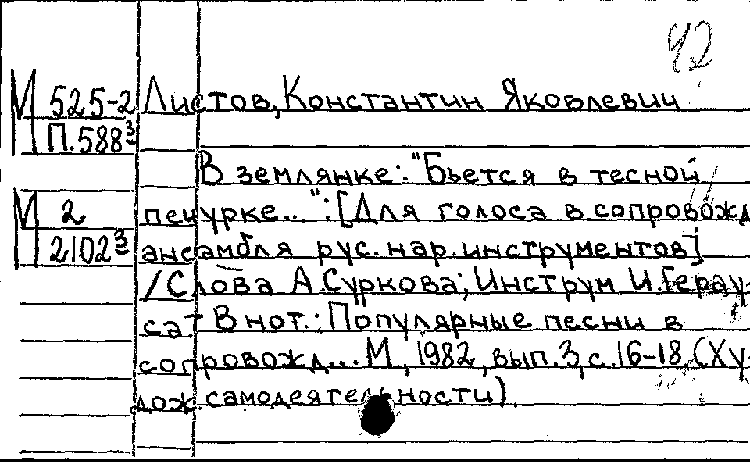 92
М 525-2 Листов, Константин Яковлевич
П.588³
В землянке: "Бьется в тесной
М 2 печурке...": [Для голоса в сопровожд
2102³ ансамбля рус. нар. инструментов]
/ Слова А.Суркова; Инструм И.Герау-
сат В нот.: Популярные песни в
сопровожд... М, 1982, вып.3, с.16-18. (Ху-
дож. самодеятельности)